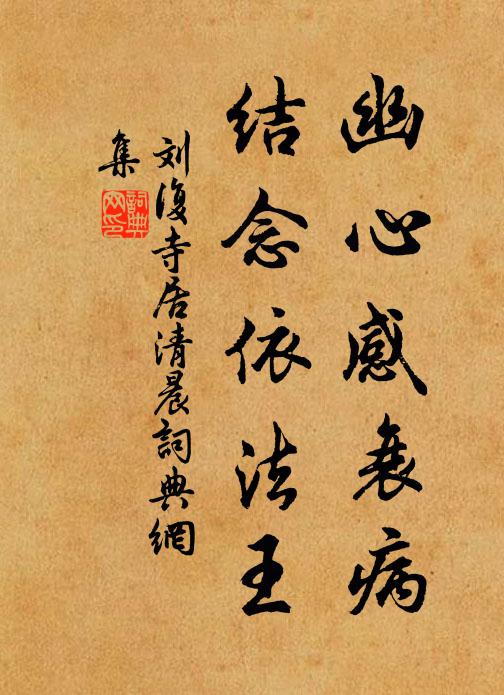 幽心感衰病
结念依法王
刘復寺居清晨詞典網
集
詞典
网印